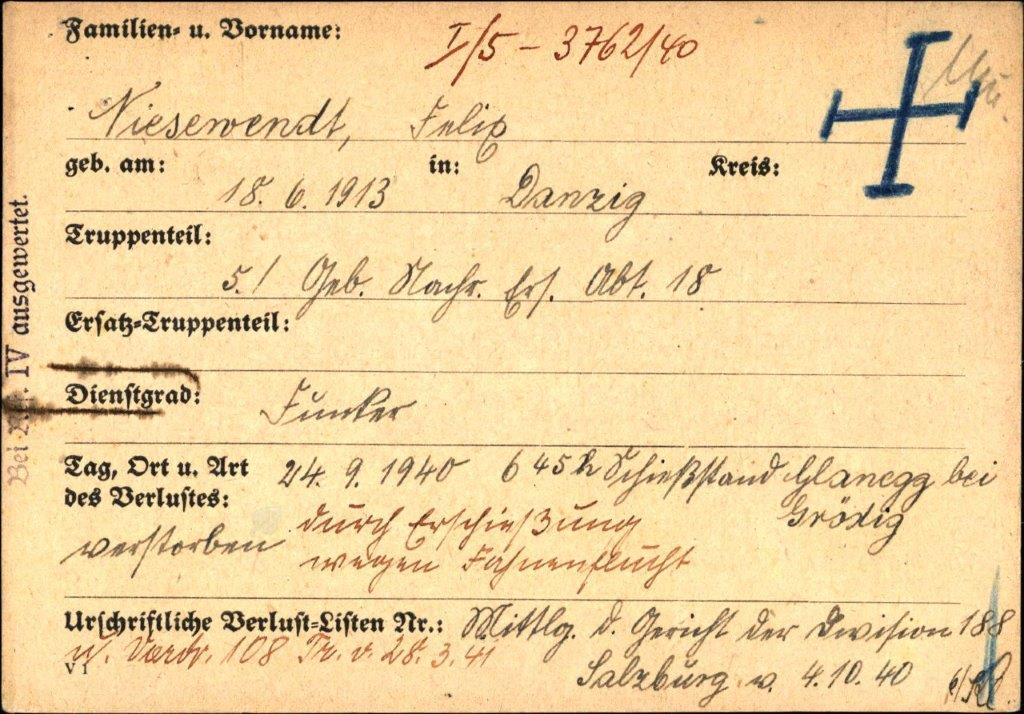 Familien- u. Vorname:
I/5 - 3762/40
Niesewendt, Felix
geb. am: in: Kreis:
18. 6. 1913 Danzig
Truppenteil:
5./ Geb. Nachr. Ers. Abt. 18
Ersatz-Truppenteil:
Dienstgrad:
Funker
Tag, Ort u. Art 24. 9. 1940 6 45 h Schießstand Glanegg bei
des Verlustes: Grödig
verstorben durch Erschießung
wegen Fahnenflucht
Urschriftliche Verlust-Listen Nr.: Mittlg. d. Gericht der Division 188
108 v. 28. 3. 41
V 1
Salzburg v. 4. 10. 40
Bei IV ausgewertet.